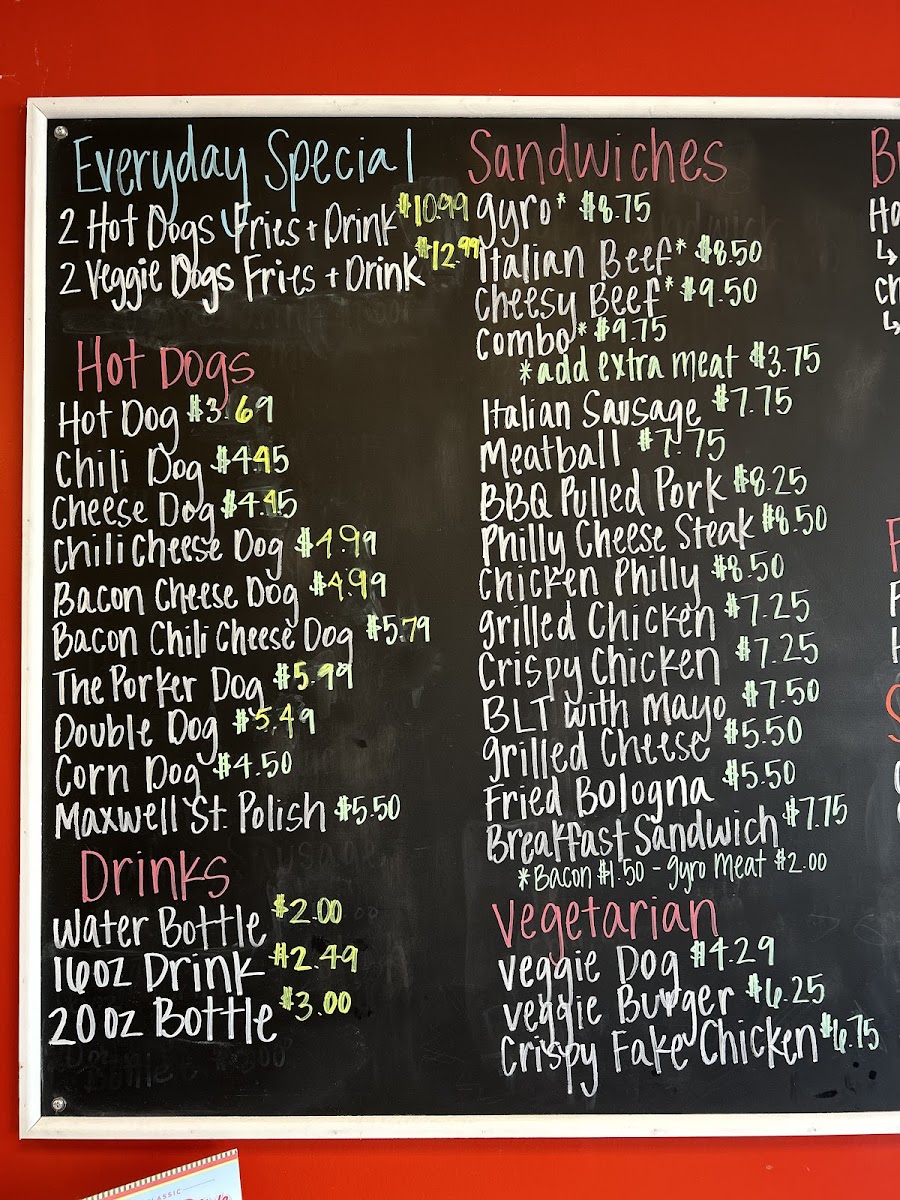 Everyday Special
2 Hot Dogs Fries + Drink $10.99
2 Veggie Dogs Fries + Drink $12.99
Hot Dogs
Hot Dog $3.69
Chili Dog $4.45
Cheese Dog $4.45
Chili Cheese Dog $4.99
Bacon Cheese Dog $4.99
Bacon Chili Cheese Dog $5.79
The Porker Dog $5.99
Double Dog $5.49
Corn Dog $4.50
Maxwell St. Polish $5.50
Drinks
Water Bottle $2.00
16oz Drink $2.49
20 oz Bottle $3.00
Sandwiches
gyro* $8.75
Italian Beef* $8.50
Cheesy Beef* $9.50
Combo* $9.75
*add extra meat $3.75
Italian Sausage $7.75
Meatball $7.75
BBQ Pulled Pork $8.25
Philly Cheese Steak $8.50
Chicken Philly $8.50
grilled Chicken $7.25
Crispy Chicken $7.25
BLT with mayo $7.50
grilled Cheese $5.50
Fried Bologna $5.50
Breakfast Sandwich $7.75
*Bacon $1.50 - gyro Meat $2.00
Vegetarian
Veggie Dog $4.29
Veggie Burger $6.25
Crispy Fake Chicken $6.75
CLASSIC